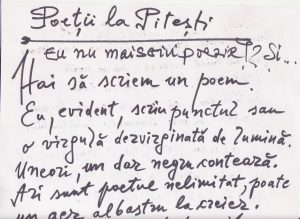 Poeții la Pitești
Eu nu mai scriu poezie!? Și...
Hai să scriem un poem.
Eu, evident, scriu punctul sau
o virgulă dezvirginată de lumină.
Uneori, un dar negru contează.
Azi sunt poetul nelimitat, poate
un aer albastru la creier.